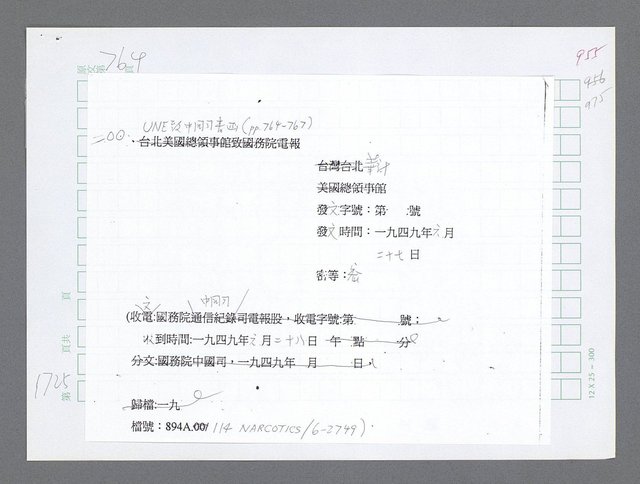 764
955
956
975
UNE致中同司書函(pp.764-767)
二00、台北美國總領事館致國務院電報
台灣台北
美國總領事館
發文字號：第　號
發文時間：一九四九年六月
二十七日
密等：
文
(收電:國務院通信紀錄司電報股，收電字號:第　號；
收到時間:一九四九年六月二十八日　午　點　分
分文:國務院中國司，一九四九年　月　日
歸檔:一九
檔號：894A.00/114 NARCOTICS/6-2749)
頁
頁共
1725
第
12 X 25 = 300